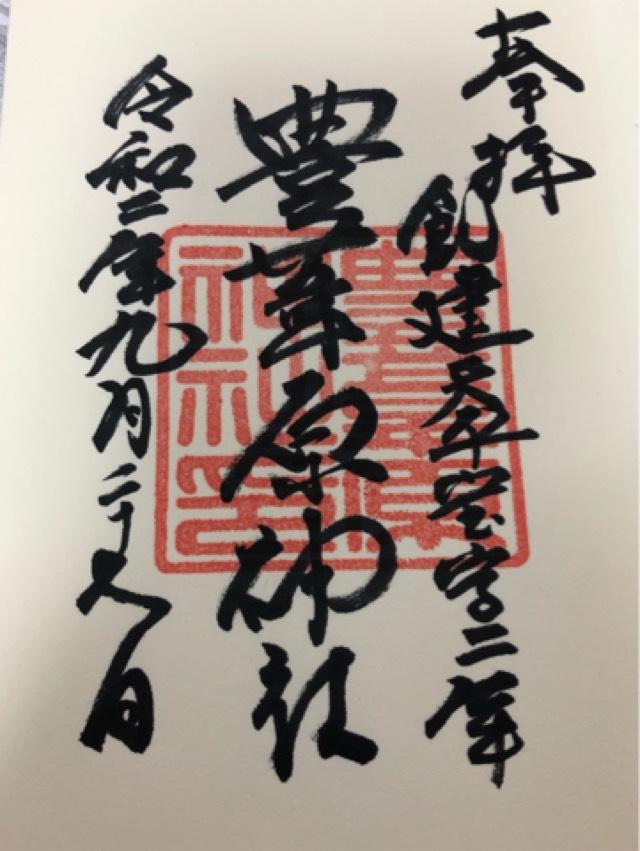 奉拝
創建天平宝字二年
豊葦原神社
令和二年九月二十日
豊葦原
神社印